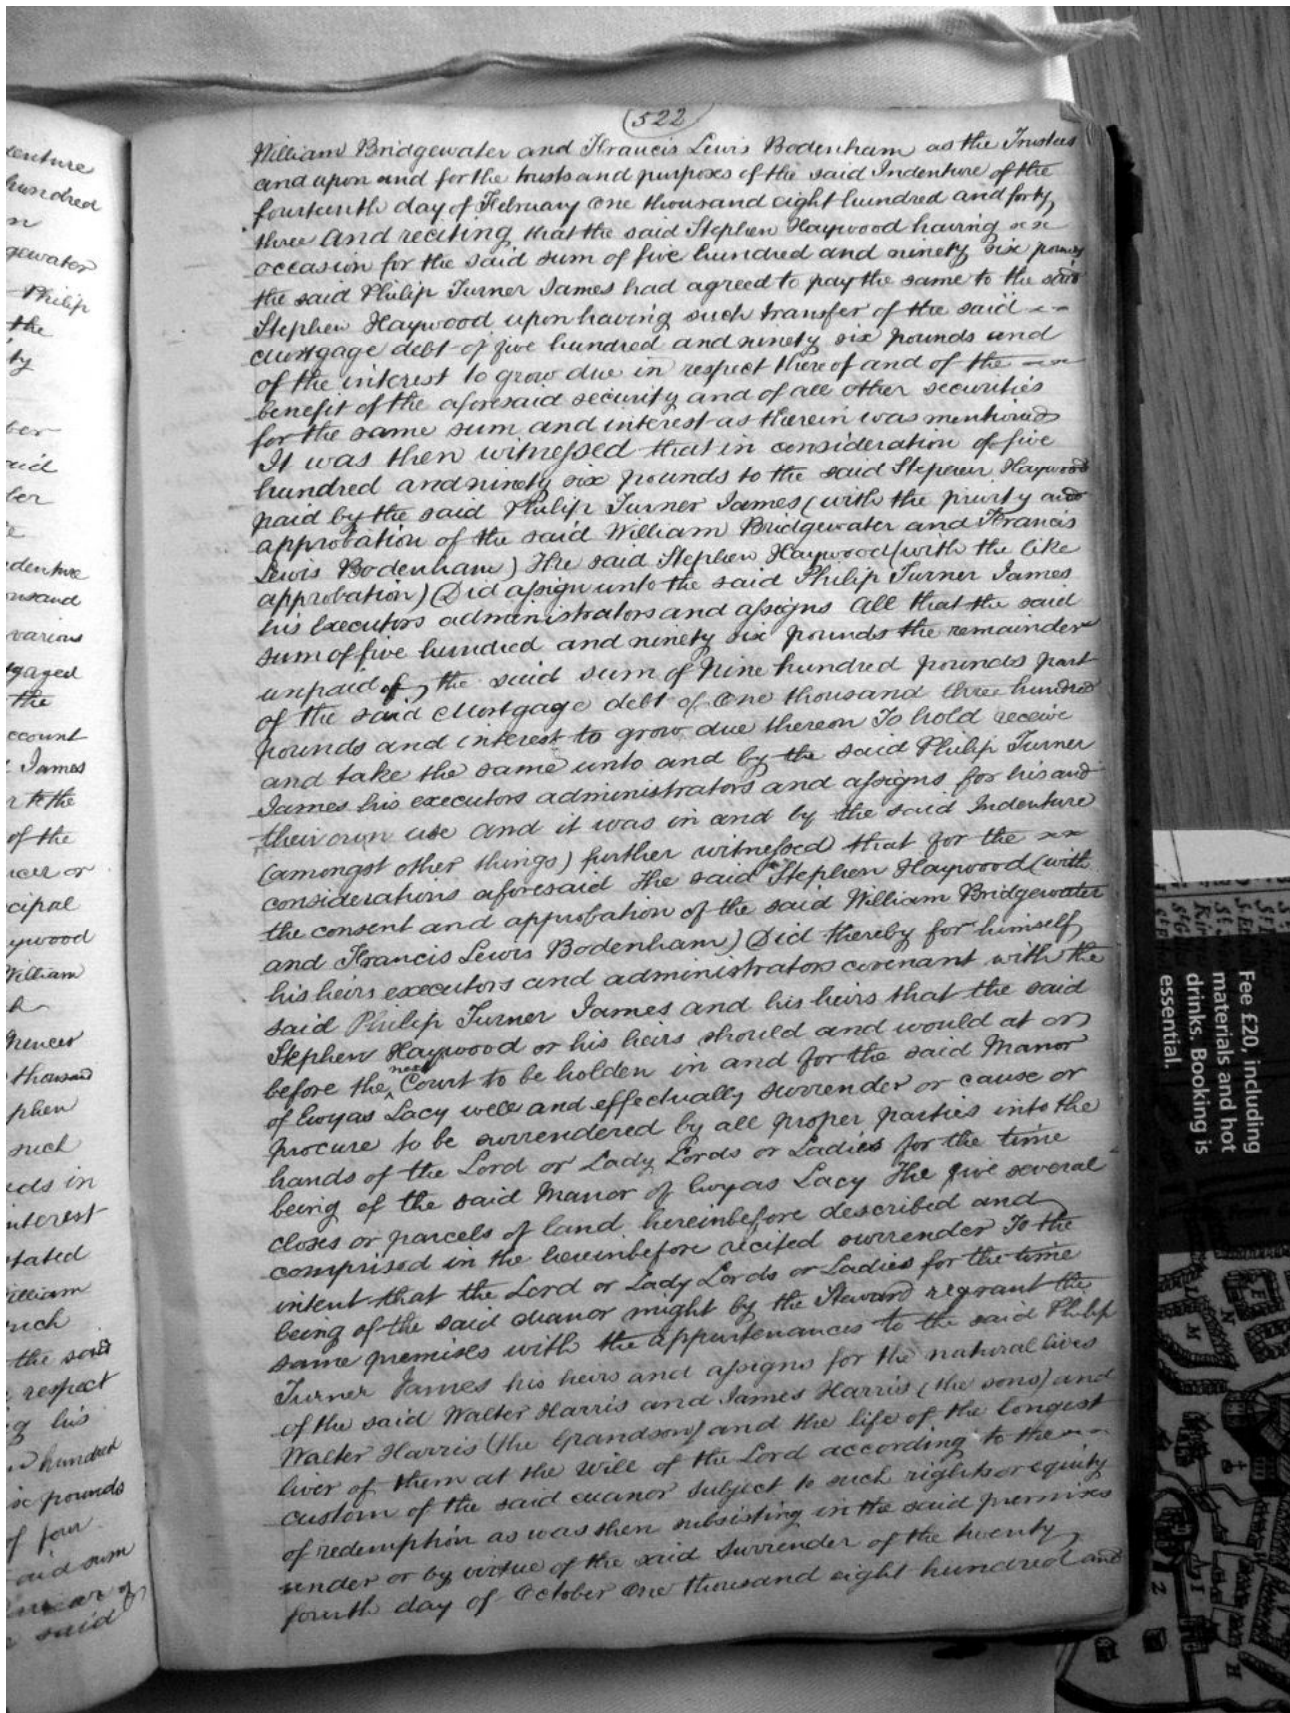 (522)
William Bridgewater and Francis Lewis Bodenham as the Trustees
and upon and for the trusts and purposes of the said Indenture of the
fourteenth day of February One thousand eight hundred and forty
three And reciting that the said Stephen Haywood having
occasion for the said sum of five hundred and ninety six pounds
the said Philip Turner James had agreed to pay the same to the said
Stephen Haywood upon having such transfer of the said
Mortgage debt of five hundred and ninety six pounds and
of the interest to grow due in respect thereof and of the
benefit of the aforesaid security and of all other securities
for the same sum and interest as therein was mentioned
It was then witnessed that in consideration of five
hundred and ninety six pounds to the said Stephen Haywood
paid by the said Philip Turner James (with the privity and
approbation of the said William Bridgewater and Francis
Lewis Bodenham) He said Stephen Haywood (with the like
approbation) Did assign unto the said Philip Turner James
his Executors administrators and assigns All that the said
sum of five hundred and ninety six pounds the remainder
unpaid of the said sum of Nine hundred pounds part
of the said Mortgage debt of One thousand three hundred
pounds and interest to grow due thereon To hold receive
and take the same unto and by the said Philip Turner
James his executors administrators and assigns for his and
their own use And it was in and by the said Indenture
(amongst other things) further witnessed that for the
considerations aforesaid He said Stephen Haywood (with
the consent and approbation of the said William Bridgewater
and Francis Lewis Bodenham) Did thereby for himself
his heirs executors and administrators covenant with the
said Philip Turner James and his heirs that the said
Stephen Haywood or his heirs should and would at or
before the next Court to be holden in and for the said Manor
of Ewyas Lacy well and effectually surrender or cause or
procure to be surrendered by all proper parties into the
hands of the Lord or Lady Lords or Ladies for the time
being of the said Manor of Ewyas Lacy The five several
closes or parcels of land hereinbefore described and
comprised in the hereinbefore recited surrender To the
intent that the Lord or Lady Lords or Ladies for the time
being of the said Manor might by the Steward regrant the
same premises with the appurtenances to the said Philip
Turner James his heirs and assigns for the natural lives
of the said Walter Harris and James Harris (the sons) and
Walter Harris (the Grandson) and the life of the longest
liver of them at the Will of the Lord according to the
custom of the said Manor Subject to such right or equity
of redemption as was then subsisting in the said premises
under or by virtue of the said Surrender of the twenty
fourth day of October One thousand eight hundred and
hundred
gewater
Philip
the
ty
said
various
the
account
James
r to the
of the
William
thousand
such
interest
William
the said
respect
g his
hundred
pounds
of four
said sum
said
Fee £20, including
materials and hot
drinks. Booking is
essential.